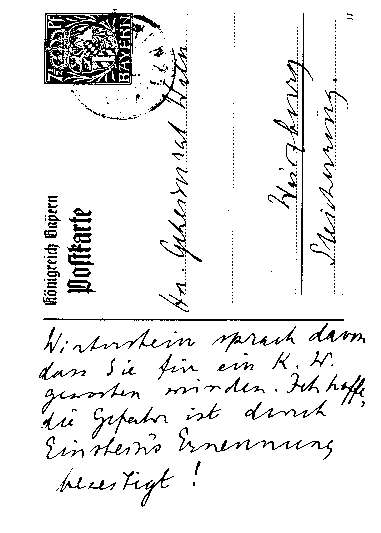 BAYERN
Königreich Bayern
Postkarte
Geheimrat Wien
Würzburg
Winterstein sprach davon
dass Sie für ein K. W.
geworben würden. Ich hoffe,
die Gefahr ist durch
Einstein's Ernennung
beseitigt!